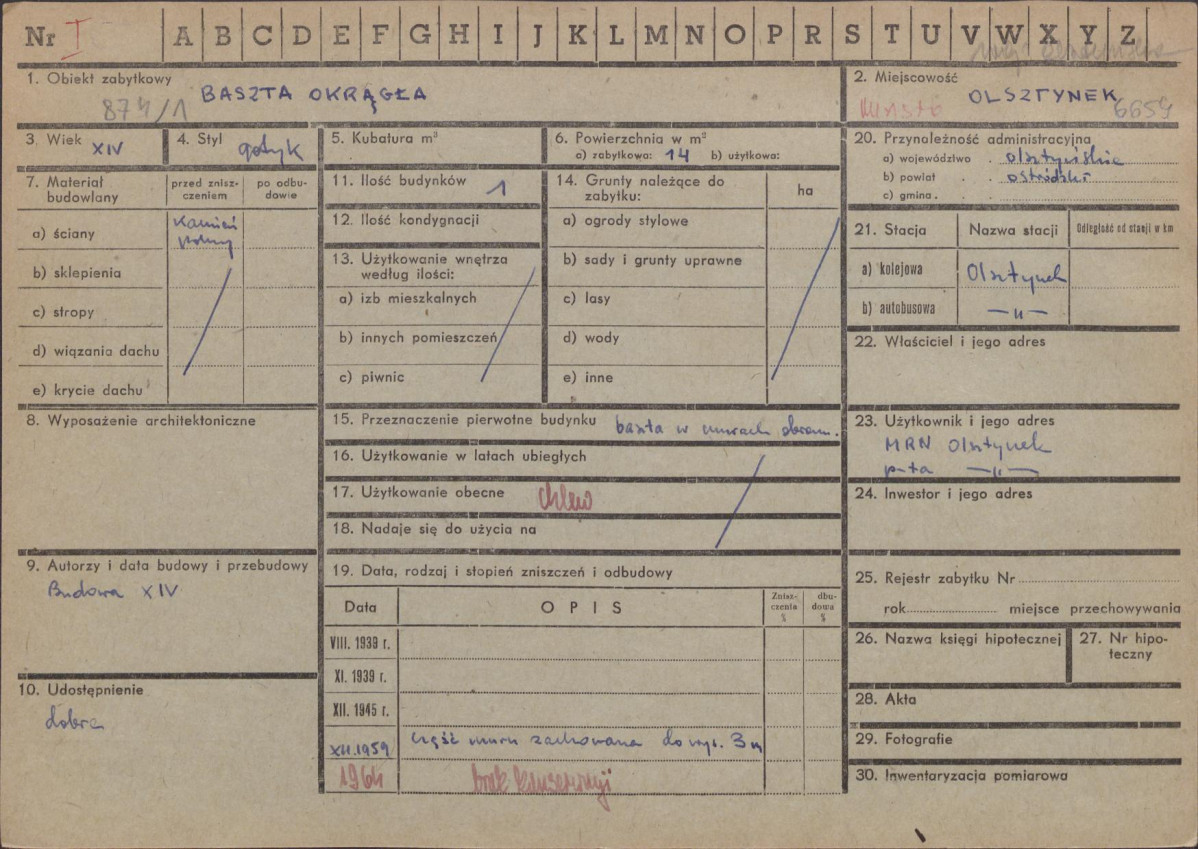 Nr I A B C D E F G H I J K L M N O P R S T U V W X Y Z
1. Obiekt zabytkowy
874/1 BASZTA OKRĄGŁA
2. Miejscowość
miasto OLSZTYNEK 6659
3. Wiek XIV
4. Styl gotyk
5. Kubatura m³
6. Powierzchnia w m²
a) zabytkowa: 14 b) użytkowa:
7. Materiał budowlany
przed zniszczeniem
po odbudowie
a) ściany kamień polny
b) sklepienia
c) stropy
d) wiązania dachu
e) krycie dachu
8. Wyposażenie architektoniczne
9. Autorzy i data budowy i przebudowy
Budowa XIV
10. Udostępnienie
dobre
11. Ilość budynków 1
12. Ilość kondygnacji
13. Użytkowanie wnętrza
według ilości:
a) izb mieszkalnych
b) innych pomieszczeń
c) piwnic
14. Grunty należące do
zabytku:
ha
a) ogrody stylowe
b) sady i grunty uprawne
c) lasy
d) wody
e) inne
15. Przeznaczenie pierwotne budynku baszta w murach obron.
16. Użytkowanie w latach ubiegłych
17. Użytkowanie obecne chlew
18. Nadaje się do użycia na
19. Data, rodzaj i stopień zniszczeń i odbudowy
Data OPIS Zniszczenia % dbudowa %
VIII. 1939 r.
XI. 1939 r.
XII. 1945 r.
XII.1959 część muru zachowana do wys. 3 m
1964 brak konserwacji
20. Przynależność administracyjna
a) województwo olsztyńskie
b) powiat ostródzki
c) gmina
21. Stacja Nazwa stacji Odległość od stacji w km
a) kolejowa Olsztynek
b) autobusowa —"—
22. Właściciel i jego adres
23. Użytkownik i jego adres
MRN Olsztynek
p-ta —"—
24. Inwestor i jego adres
25. Rejestr zabytku Nr
rok miejsce przechowywania
26. Nazwa księgi hipotecznej
27. Nr hipo-
teczny
28. Akta
29. Fotografie
30. Inwentaryzacja pomiarowa